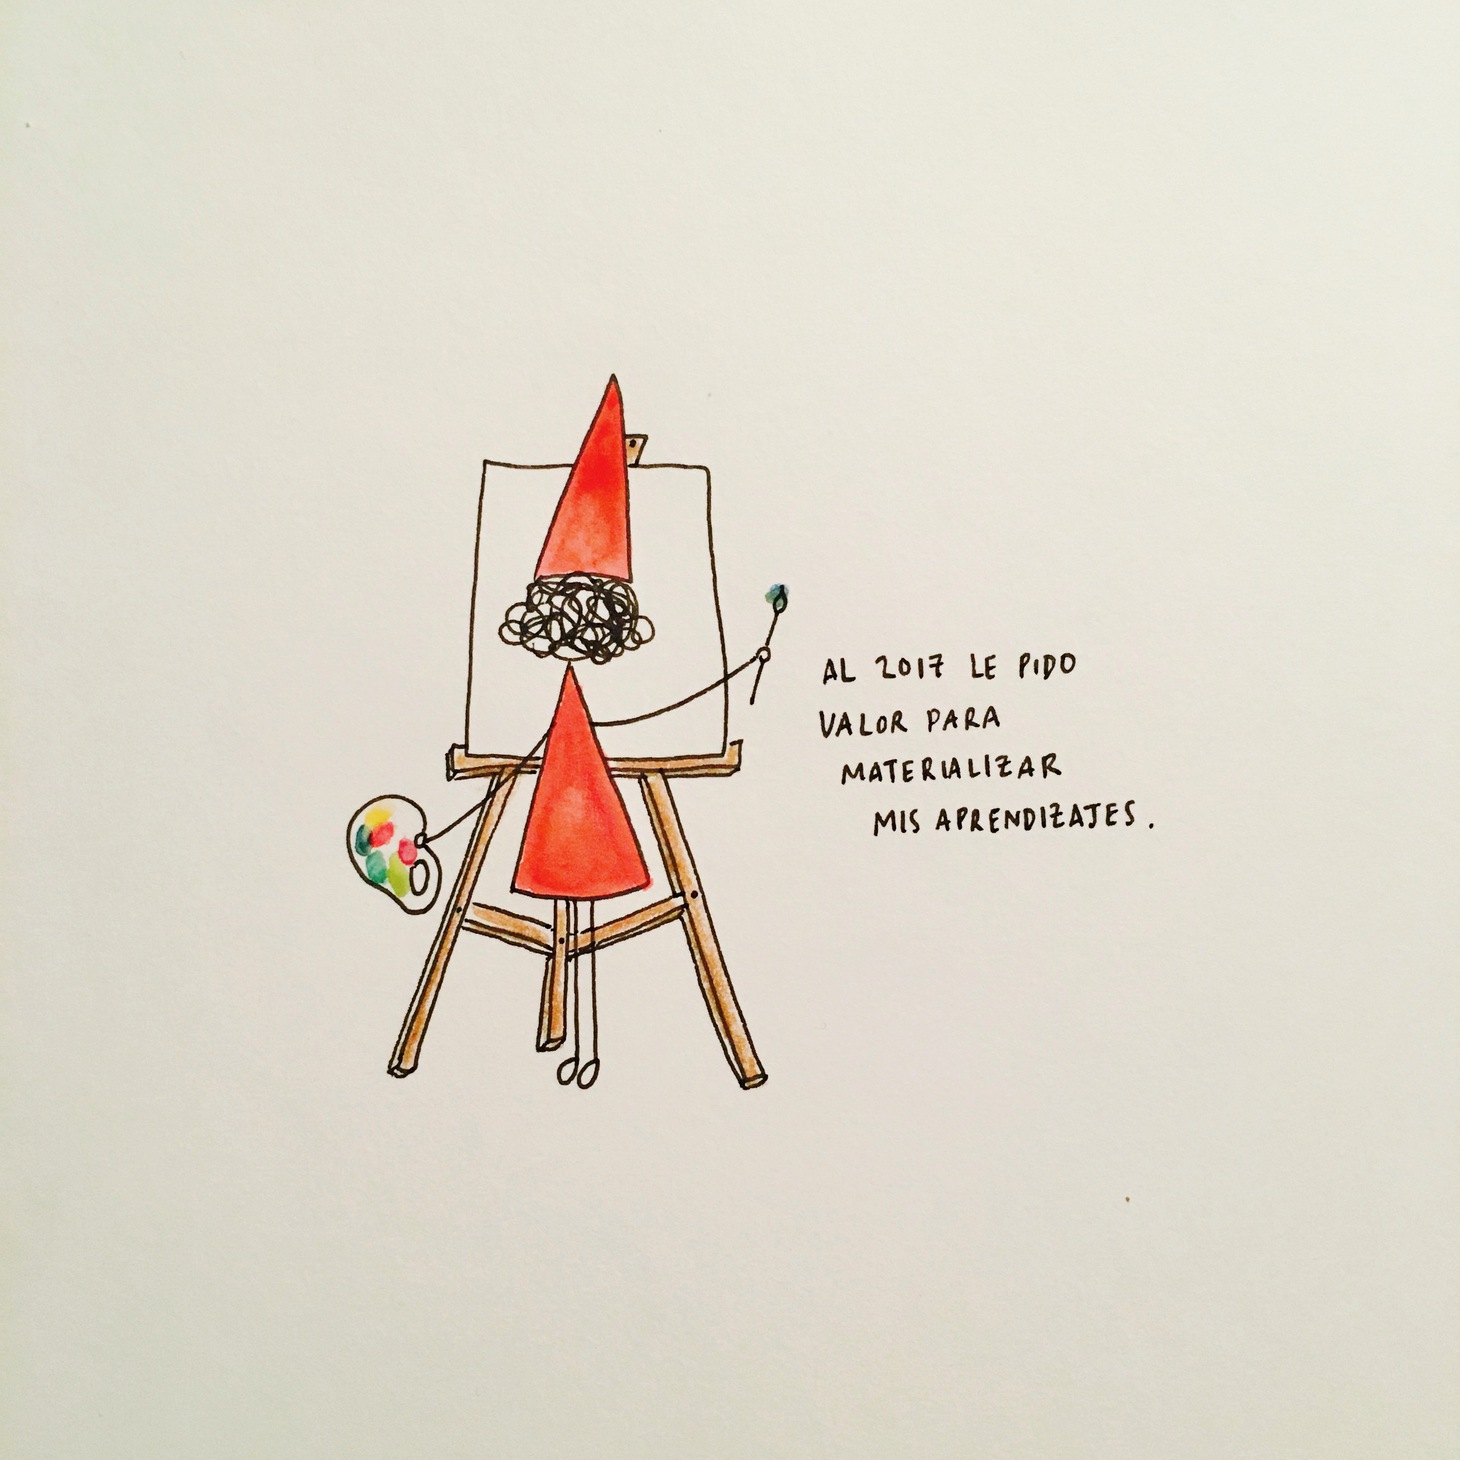 AL 2017 LE PIDO
VALOR PARA
MATERIALIZAR
MIS APRENDIZAJES.